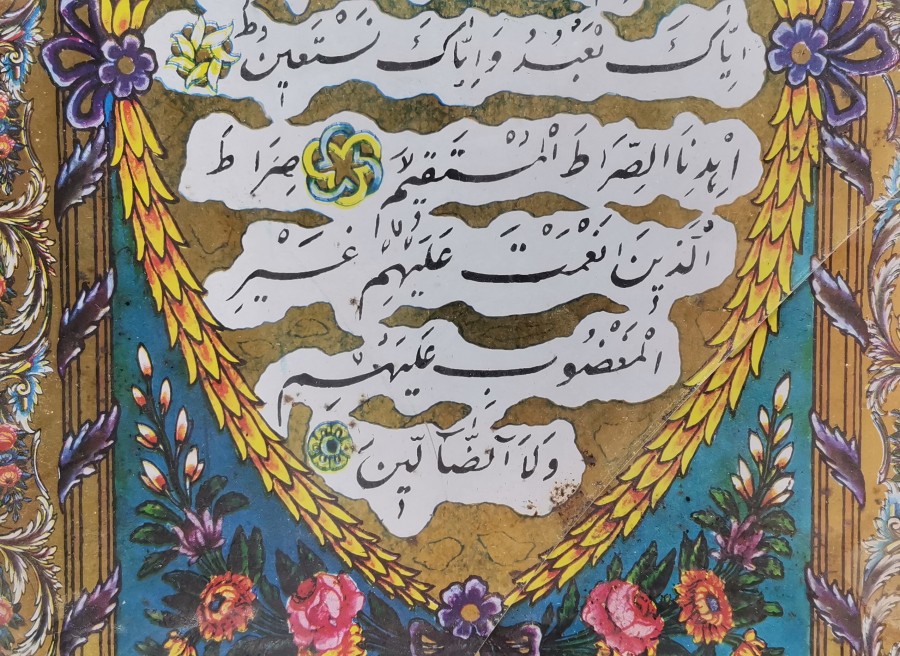 اِيَّاكَ نَعْبُدُ وَاِيَّاكَ نَسْتَعِينُ
اِهْدِنَا الصِّرَاطَ الْمُسْتَقِيمَ صِرَاطَ
الَّذِينَ اَنْعَمْتَ عَلَيْهِمْ غَيْرِ
الْمَغْضُوبِ عَلَيْهِمْ
وَلَا الضَّآلِّينَ